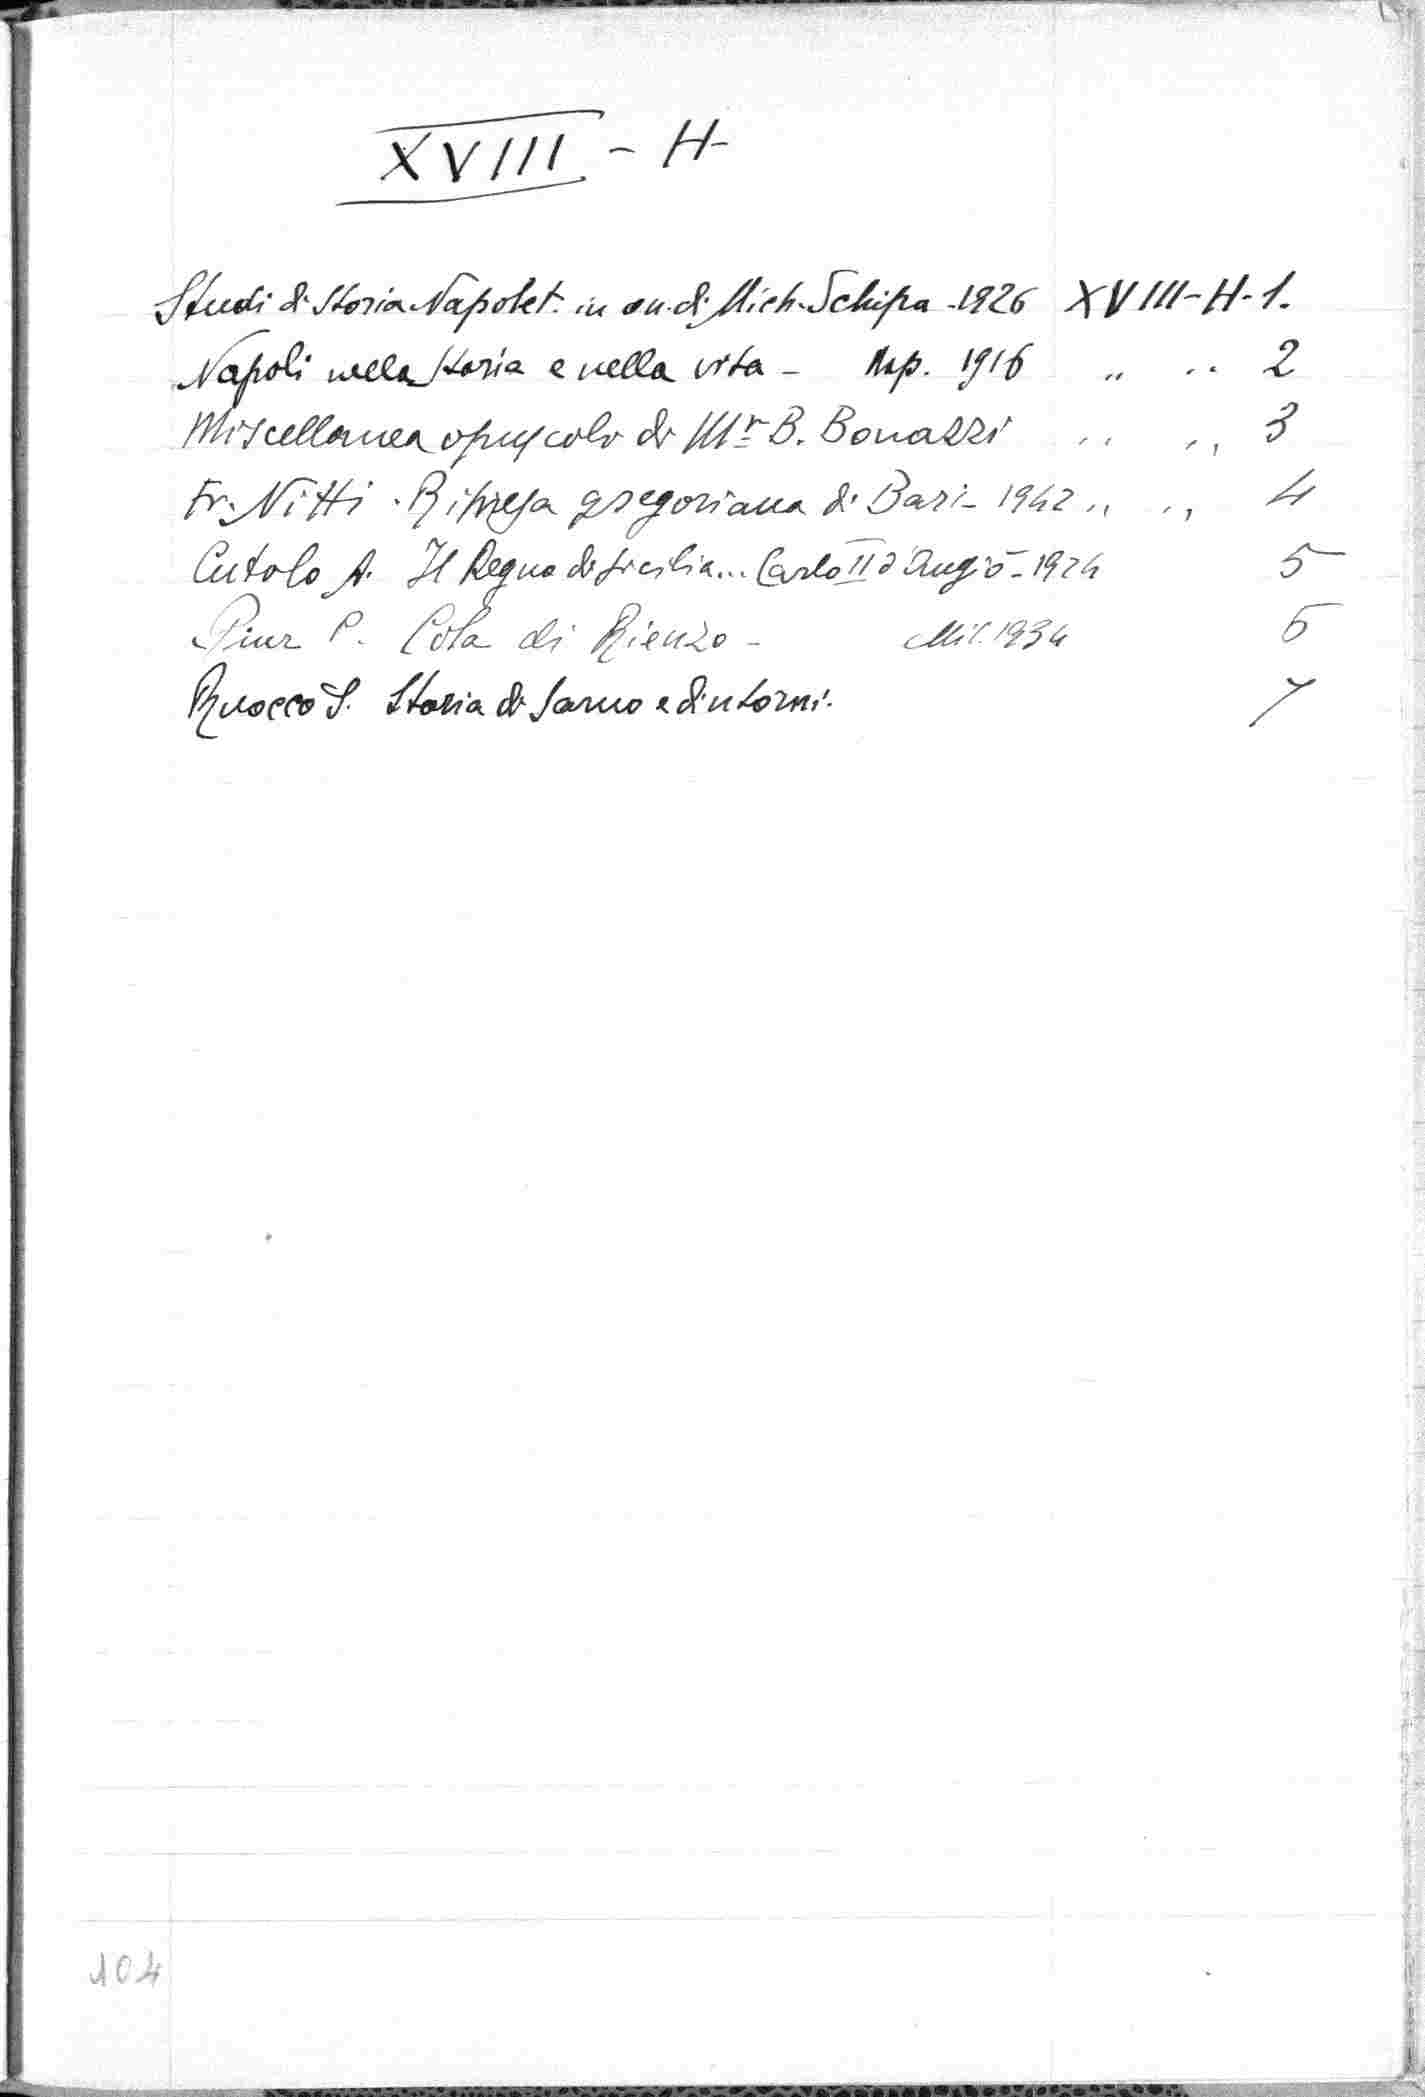 XVIII - H-
Studi di Storia Napolet. in on. di Mich. Schipa - 1926 XVIII - H - 1.
Napoli nella Storia e nella vita - Nap. 1916 " " 2
Miscellanea opuscolo di Mr B. Bonazzi " " 3
Fr. Nitti. Ripresa gregoriana di Bari - 1942 " " 4
Cutolo A. Il Regno di Sicilia... Carlo II d'Angiò - 1924 5
Piur P. Cola di Rienzo - Mil. 1934 6
Ruocco S. Storia di Sarno e dintorni. 7
104